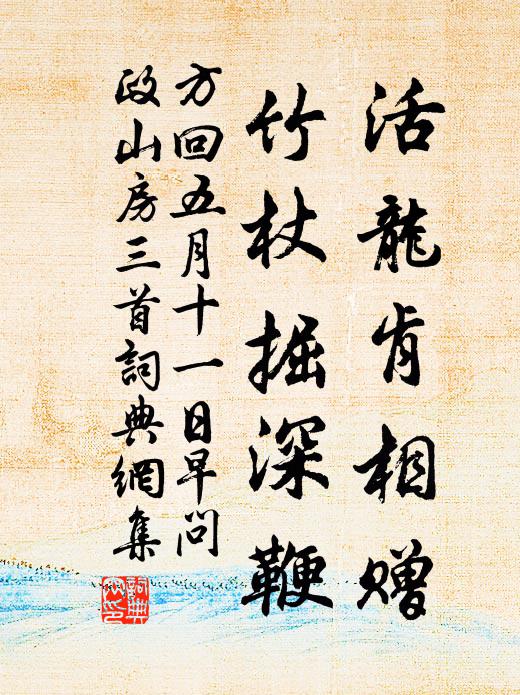 活龍肯相贈
竹杖掘深鞭
方回五月十一日早問
政山房三首詞典網集